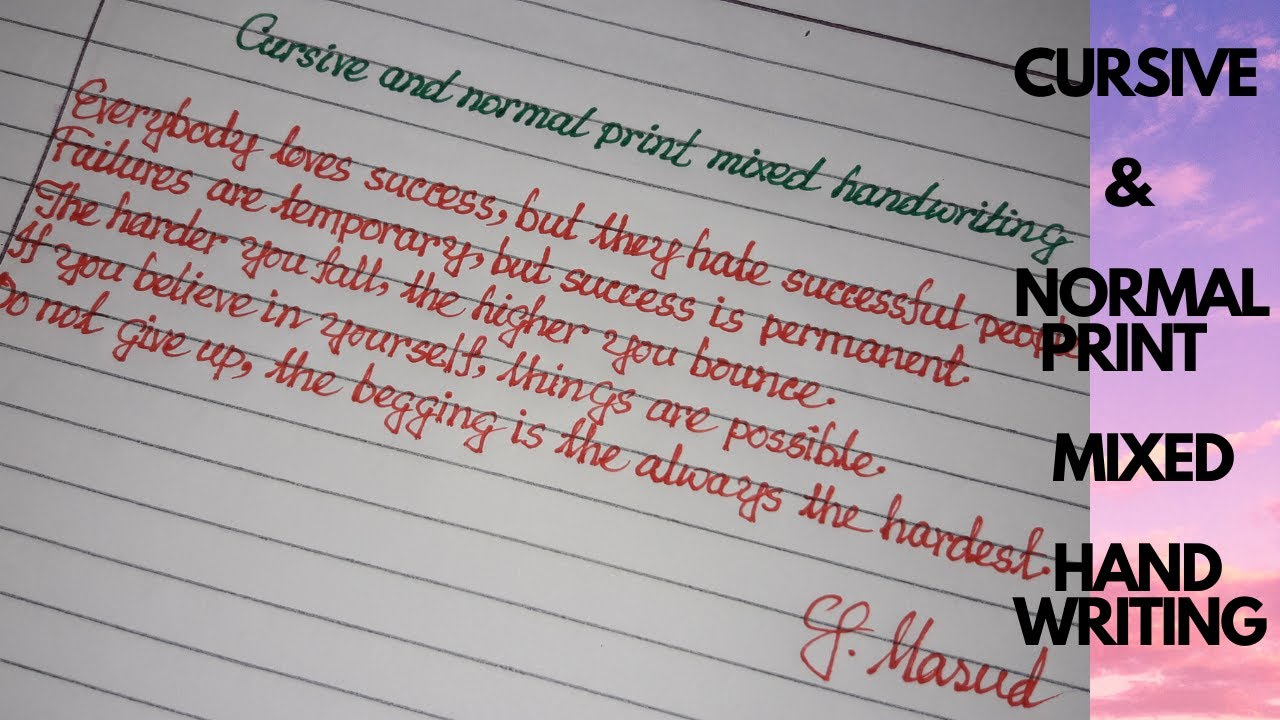 Cursive and normal print mixed handwriting
Everybody loves success, but they hate successful people
Failures are temporary, but success is permanent.
The harder you fall, the higher you bounce.
If you believe in yourself, things are possible.
Do not give up, the begging is the always the hardest.
Masud
CURSIVE
&
NORMAL
PRINT
MIXED
HAND
WRITING